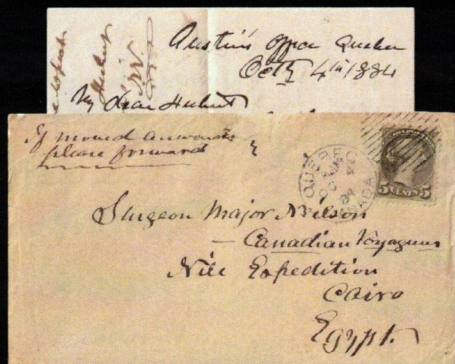 Austin's office Quebec
Octr 4th 1884
My dear Hubert
If moved onwards
please forward
QUEBEC
OC 4
84
CANADA
5 CENTS 5
Surgeon Major Neilson
Canadian Voyageurs
Nile Expedition
Cairo
Egypt.